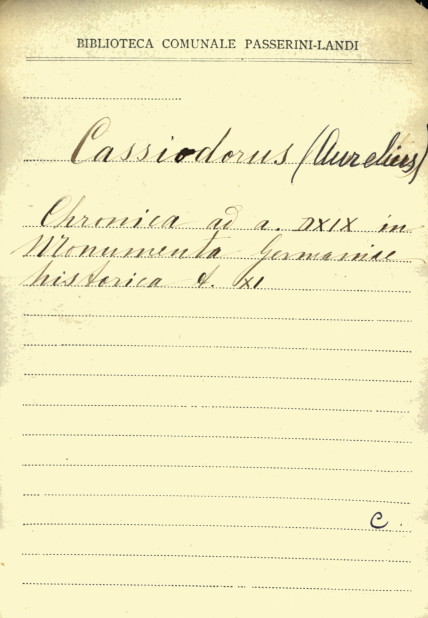 BIBLIOTECA COMUNALE PASSERINI-LANDI
Cassiodorus (Aurelius)
Chronica ad a. DXIX in
Monumenta Germaniae
historica t. XI
C.